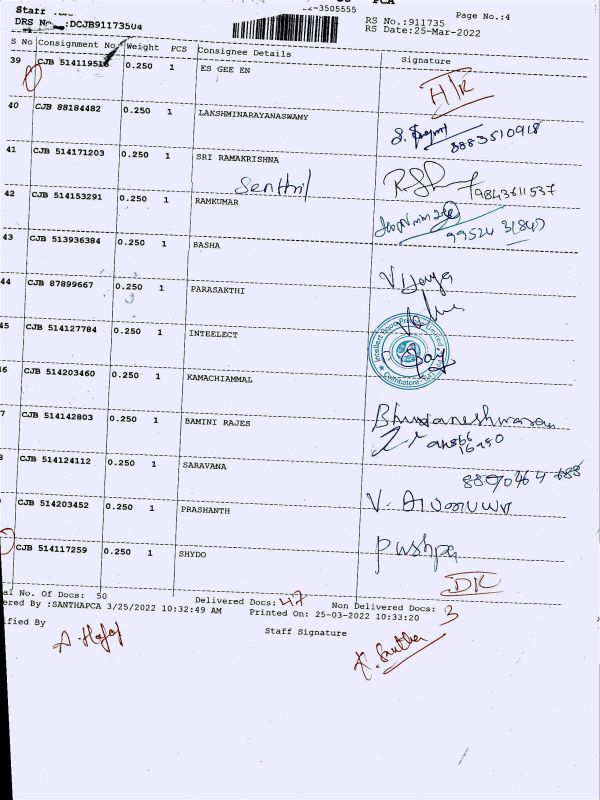 Staff
-3505555
PCA
DRS No :DCJB91173504
RS No.:911735
Page No.:4
RS Date:25-Mar-2022
S No Consignment No. Weight PCS Consignee Details Signature
39 CJB 0.250 1 ES GEE EN
40 CJB 88184482 0.250 1 LAKSHMINARAYANASWAMY
8883510918
41 CJB 514171203 0.250 1 SRI RAMAKRISHNA
Senthil
9843611537
42 CJB 514153291 0.250 1 RAMKUMAR
99524 31847
43 CJB 513936384 0.250 1 BASHA
V. Daya
44 CJB 87899667 0.250 1 PARASAKTHI
45 CJB 514127784 0.250 1 INTEELECT
46 CJB 514203460 0.250 1 KAMACHIAMMAL
Bhuvaneshwaran
7 CJB 514142803 0.250 1 BAMINI RAJES
8 CJB 514124112 0.250 1 SARAVANA
CJB 514203452 0.250 1 PRASHANTH
CJB 514117259 0.250 1 SHYDO
Pushpa
DK
al No. Of Docs: 50 Delivered Docs: 47 Non Delivered Docs: 3
ered By :SANTHAPCA 3/25/2022 10:32:49 AM Printed On: 25-03-2022 10:33:20
ified By Staff Signature
K. Santha